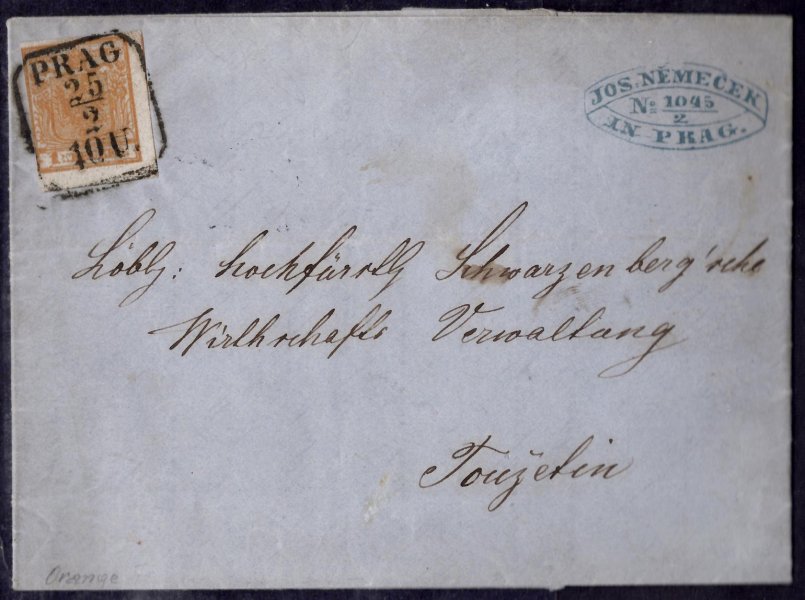 PRAG
25
2
10 U.
JOS. NĚMEČEK
No 1045
2
IN PRAG.
Löbl: hochfürstl Schwarzenberg'sche
Wirthschafts Verwaltung
Toužetin
Orange